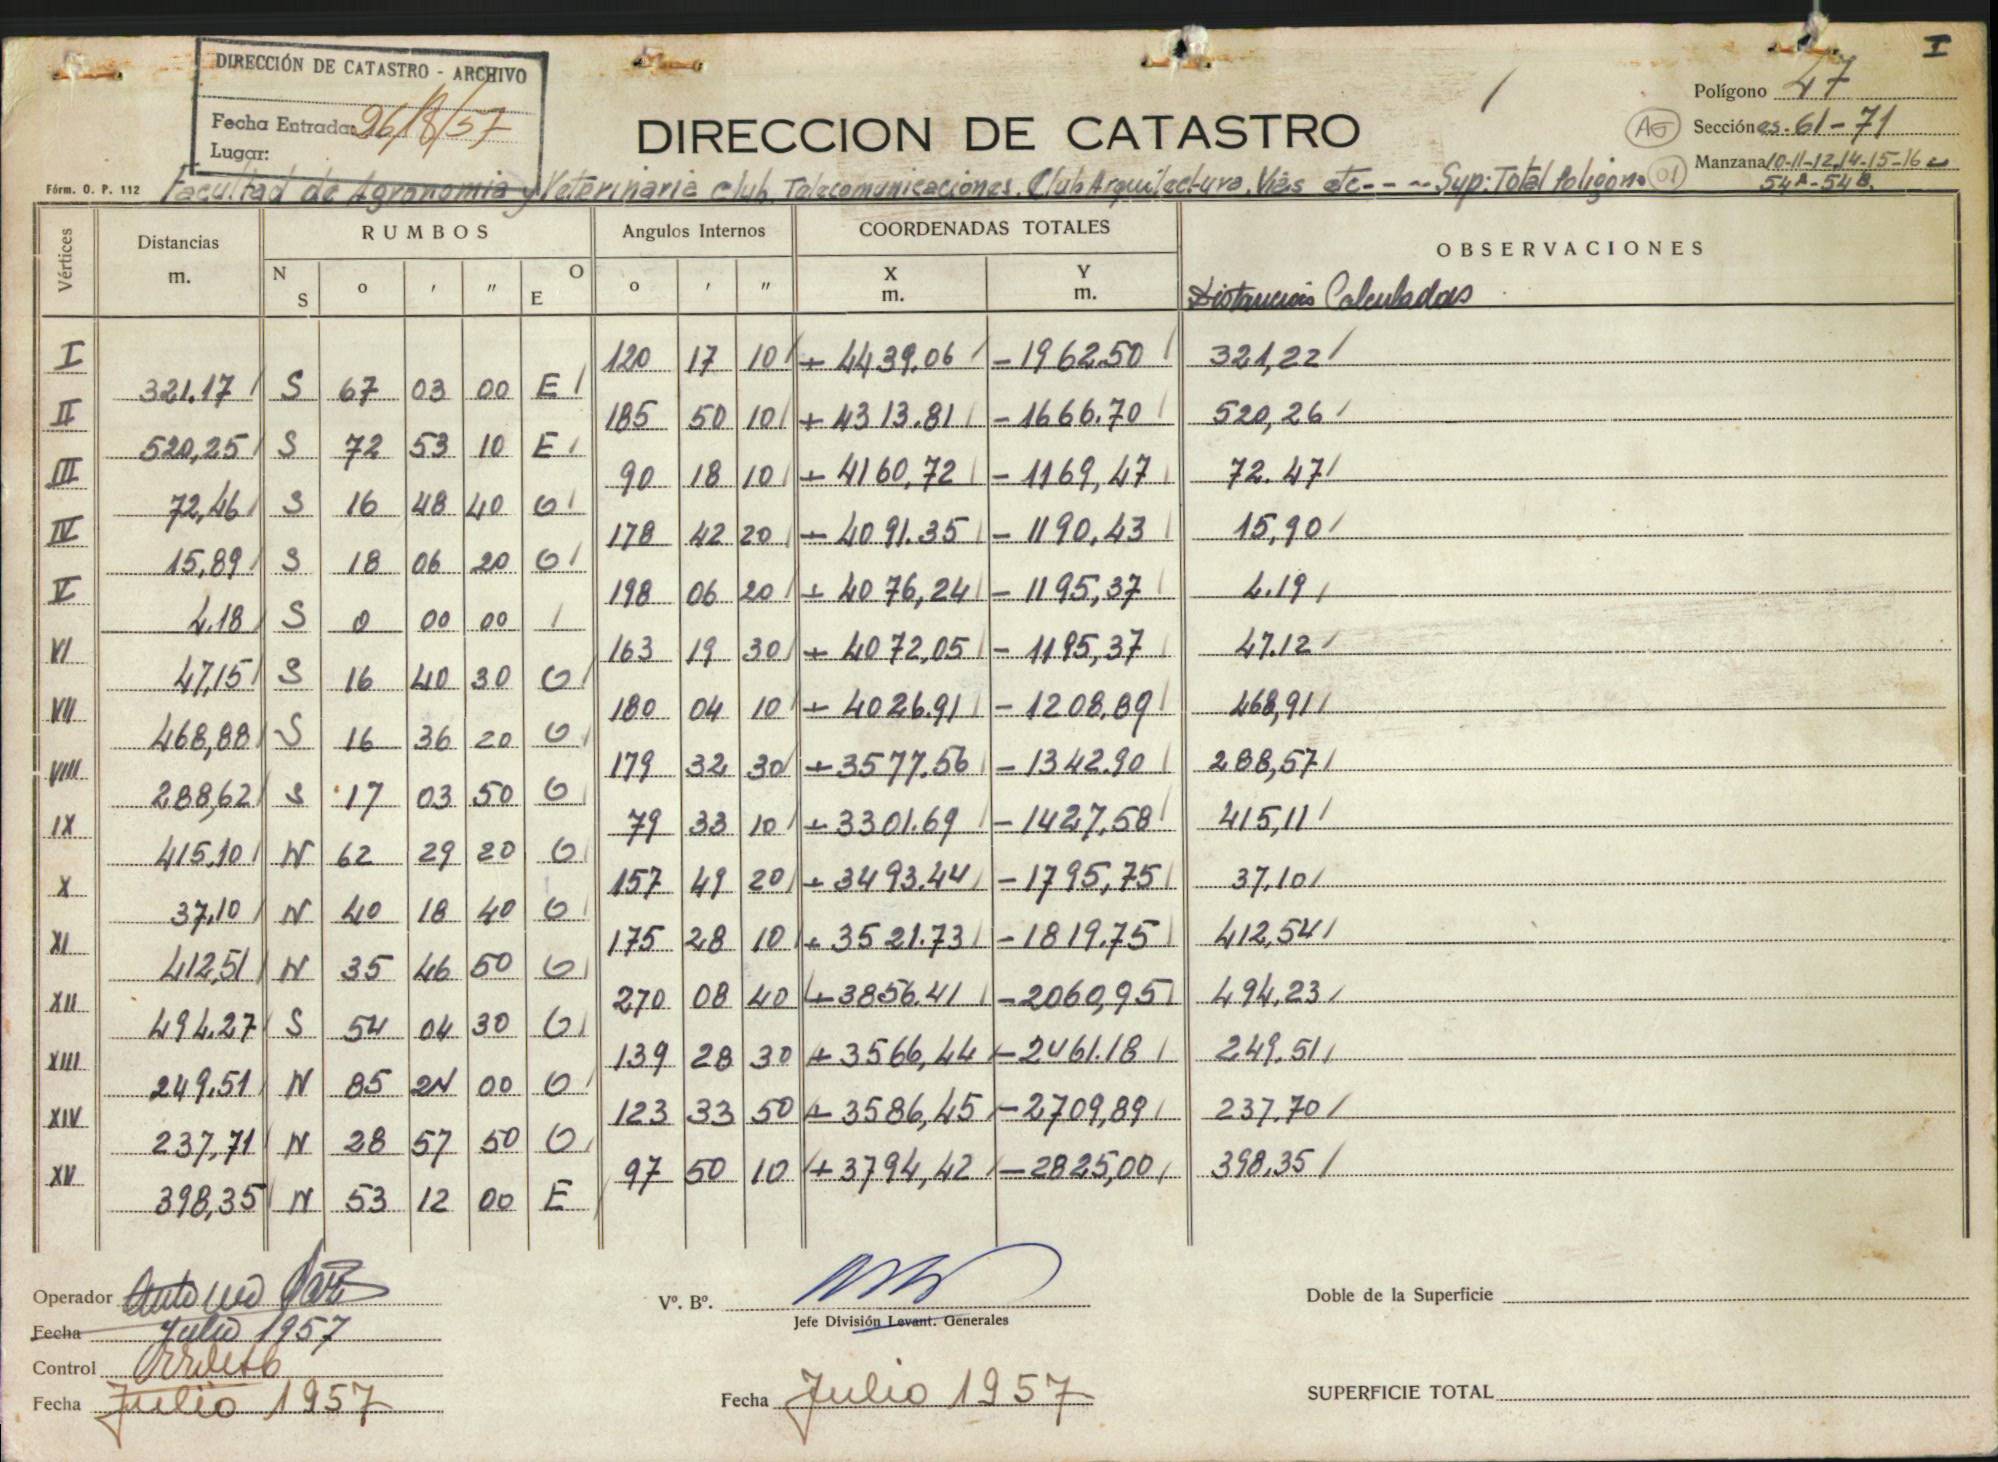 I
DIRECCIÓN DE CATASTRO - ARCHIVO
Fecha Entrada: 26/8/57
Lugar:
DIRECCION DE CATASTRO
Polígono 47
AG Sección es. 61-71
Manzana 10-11-12,14-15-16
54A-54B.
Fórm. O. P. 112
Facultad de Agronomia y Veterinaria Club. Telecomunicaciones. Club Arquitectura. Vias etc - - - Sup: Total Poligono 01
Vértices Distancias RUMBOS Angulos Internos COORDENADAS TOTALES OBSERVACIONES
m. N S o ' " O E o ' " X m. Y m. Distancias Calculadas
I 120 17 10 + 4439.06 - 1962.50 321,22
321.17 S 67 03 00 E
II 185 50 10 + 4313.81 - 1666.70 520,26
520,25 S 72 53 10 E
III 90 18 10 + 4160,72 - 1169,47 72.47
72,46 S 16 48 40 O
IV 178 42 20 + 4091.35 - 1190,43 15,90
15,89 S 18 06 20 O
V 198 06 20 + 4076,24 - 1195,37 4.19
4.18 S 0 00 00
VI 163 19 30 + 4072,05 - 1195,37 47.12
47,15 S 16 40 30 O
VII 180 04 10 + 4026.91 - 1208.89 468,91
468,88 S 16 36 20 O
VIII 179 32 30 + 3577.56 - 1342.90 288,57
288,62 S 17 03 50 O
IX 79 33 10 + 3301.69 - 1427,58 415,11
415,10 N 62 29 20 O
X 157 49 20 + 3493.44 - 1795,75 37,10
37,10 N 40 18 40 O
XI 175 28 10 + 3521.73 - 1819.75 412,54
412,51 N 35 46 50 O
XII 270 08 40 + 3856.41 - 2060,95 494,23
494.27 S 54 04 30 O
XIII 139 28 30 + 3566,44 - 2461.18 249.51
249.51 N 85 24 00 O
XIV 123 33 50 + 3586,45 - 2709,89 237.70
237,71 N 28 57 50 O
XV 97 50 10 + 3794,42 - 2825,00 398.35
398,35 N 53 12 00 E
Operador Antonio
Vº. Bº.
Doble de la Superficie
Jefe División Levant. Generales
Fecha Julio 1957
Control
Fecha Julio 1957
Fecha Julio 1957
SUPERFICIE TOTAL